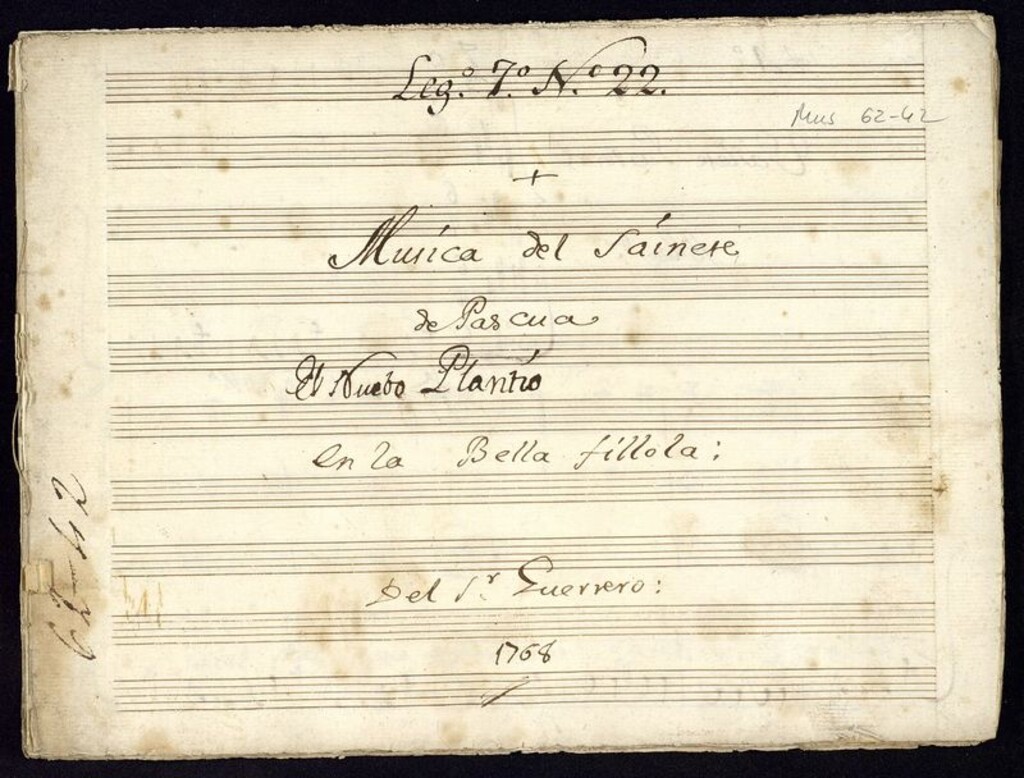 Leg.º 7.º N.º 22.
Mus 62-42
+
Musica del Sáinete
de Pascua
El Nuebo Plantío
en la Bella fillola:
Del S.r Guerrero:
1768
62-42